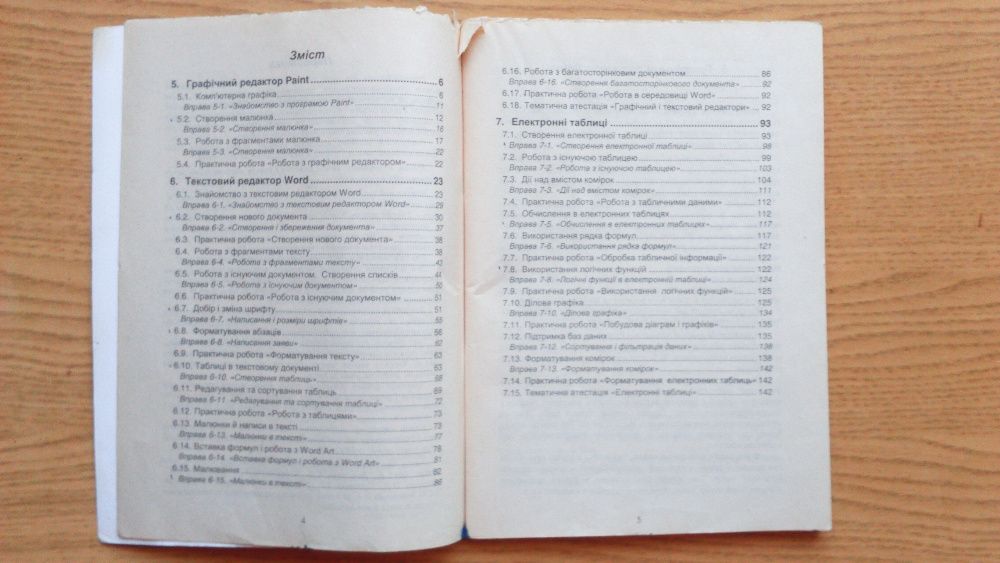 Зміст
5. Графічний редактор Paint 6
5.1. Комп'ютерна графіка 6
Вправа 5-1. «Знайомство з програмою Paint» 11
5.2. Створення малюнка 12
Вправа 5-2. «Створення малюнка» 16
5.3. Робота з фрагментами малюнка 17
Вправа 5-3. «Створення малюнка» 22
5.4. Практична робота «Робота з графічним редактором» 22
6. Текстовий редактор Word 23
6.1. Знайомство з текстовим редактором Word 23
Вправа 6-1. «Знайомство з текстовим редактором Word» 29
6.2. Створення нового документа 30
Вправа 6-2. «Створення і збереження документа» 37
6.3. Практична робота «Створення нового документа» 38
6.4. Робота з фрагментами тексту 38
Вправа 6-4. «Робота з фрагментами тексту» 43
6.5. Робота з існуючим документом. Створення списків 44
Вправа 6-5. «Робота з існуючим документом» 50
6.6. Практична робота «Робота з існуючим документом» 51
6.7. Добір і зміна шрифту 51
Вправа 6-7. «Написання і розміри шрифтів» 55
6.8. Форматування абзаців 56
Вправа 6-8. «Написання заяви» 62
6.9. Практична робота «Форматування тексту» 63
6.10. Таблиці в текстовому документі 63
Вправа 6-10. «Створення таблиць» 68
6.11. Редагування та сортування таблиць 69
Вправа 6-11. «Редагування та сортування таблиці» 72
6.12. Практична робота «Робота з таблицями» 73
6.13. Малюнки й написи в тексті 73
Вправа 6-13. «Малюнки в тексті» 77
6.14. Вставка формул і робота з Word Art 78
Вправа 6-14. «Вставка формул і робота з Word Art» 81
6.15. Малювання 82
Вправа 6-15. «Малюнки в тексті» 86
4
6.16. Робота з багатосторінковим документом 86
Вправа 6-16. «Створення багатосторінкового документа» 92
6.17. Практична робота «Робота в середовищі Word» 92
6.18. Тематична атестація «Графічний і текстовий редактори» 92
7. Електронні таблиці 93
7.1. Створення електронної таблиці 93
Вправа 7-1. «Створення електронної таблиці» 98
7.2. Робота з існуючою таблицею 99
Вправа 7-2. «Робота з існуючою таблицею» 103
7.3. Дії над вмістом комірок 104
Вправа 7-3. «Дії над вмістом комірок» 111
7.4. Практична робота «Робота з табличними даними» 112
7.5. Обчислення в електронних таблицях 112
Вправа 7-5. «Обчислення в електронних таблицях» 117
7.6. Використання рядка формул 117
Вправа 7-6. «Використання рядка формул» 121
7.7. Практична робота «Обробка табличної інформації» 122
7.8. Використання логічних функцій 122
Вправа 7-8. «Логічні функції в електронній таблиці» 124
7.9. Практична робота «Використання логічних функцій» 125
7.10. Ділова графіка 125
Вправа 7-10. «Ділова графіка» 134
7.11. Практична робота «Побудова діаграм і графіків» 135
7.12. Підтримка баз даних 135
Вправа 7-12. «Сортування і фільтрація даних» 138
7.13. Форматування комірок 138
Вправа 7-13. «Форматування комірок» 142
7.14. Практична робота «Форматування електронних таблиць» 142
7.15. Тематична атестація «Електронні таблиці» 142
5